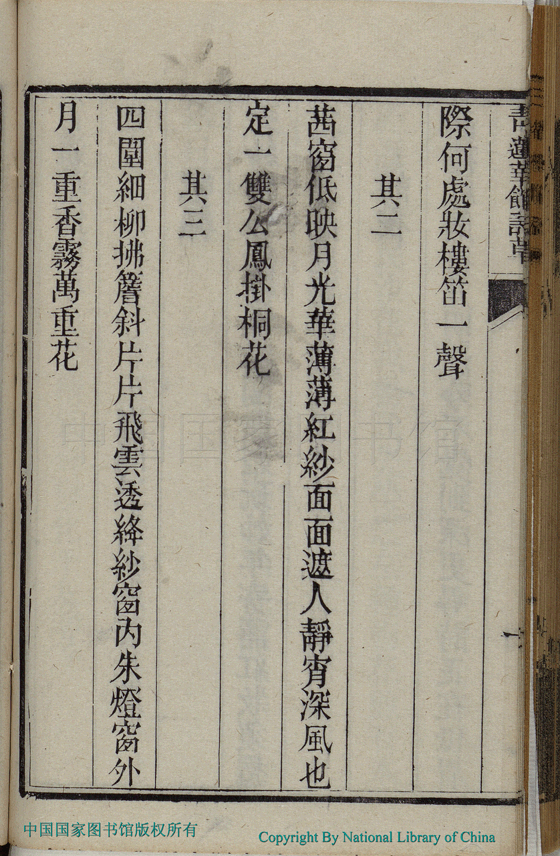 青蓮華館詩草
際何處妝樓笛一聲
其二
茜窗低映月光華薄薄紅紗面面遮人靜宵深風也
定一雙公鳳掛桐花
其三
四圍細柳拂簷斜片片飛雲透絳紗窗內朱燈窗外
月一重香霧萬重花
中国国家图书馆版权所有
Copyright By National Library of China